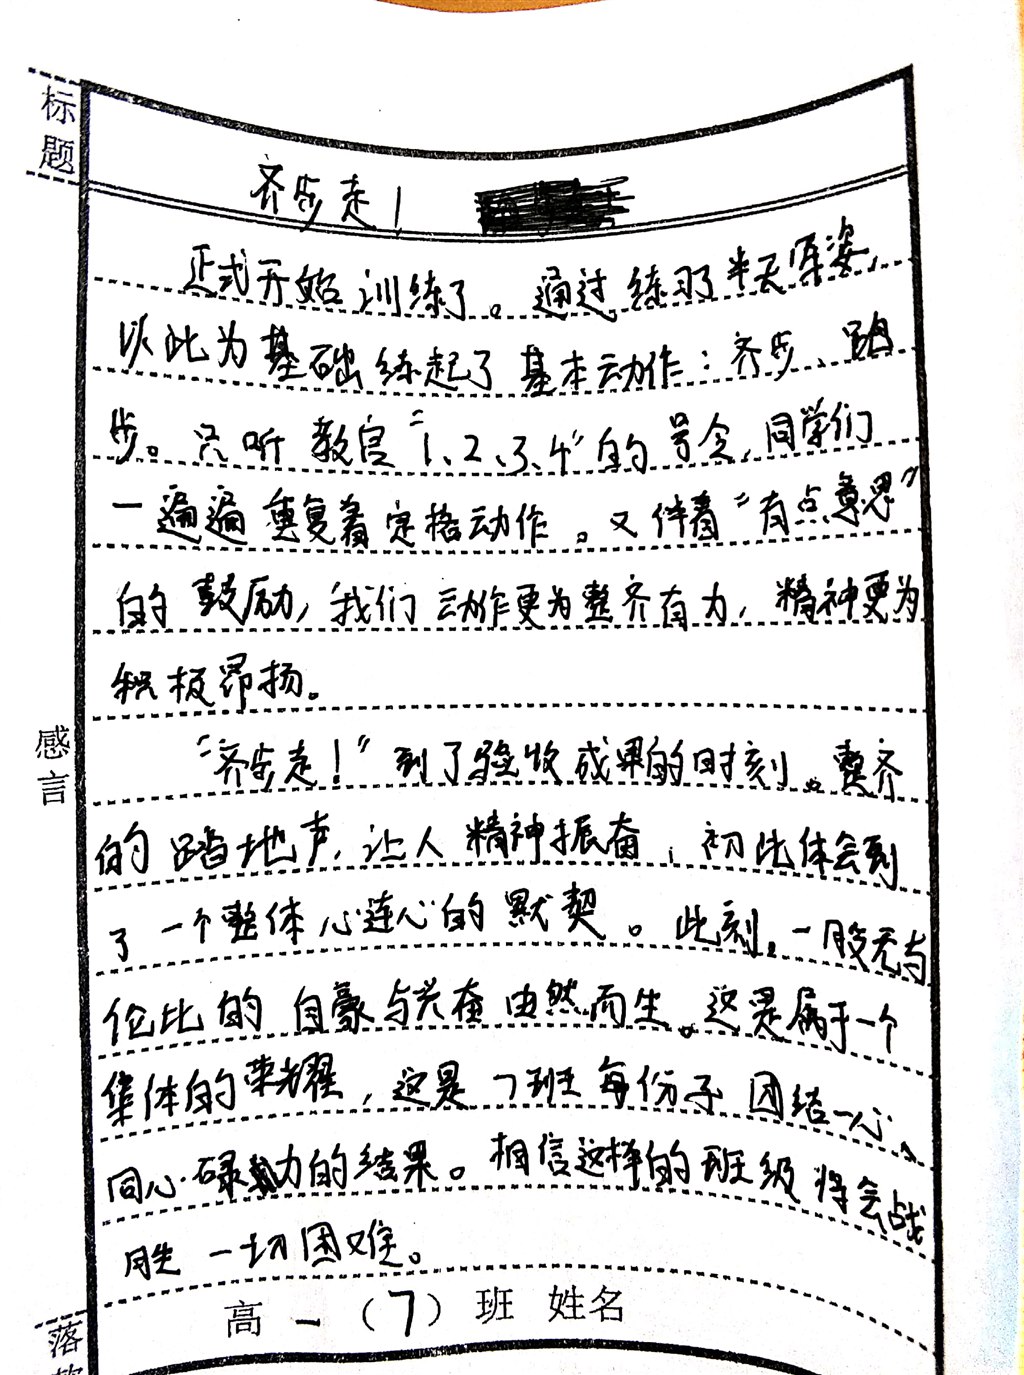 标题
齐步走!
正式开始训练了。通过练习了半天军姿,
以此为基础练起了基本动作:齐步、跑
步。只听教官“1、2、3、4”的号令,同学们
一遍遍重复着定格动作。又伴着“有点意思”
的鼓励,我们动作更为整齐有力,精神更为
积极昂扬。
感言
“齐步走!”到了验收成果的时刻。整齐
的踏地声,让人精神振奋,初此体会到
了一个整体心连心的默契。此刻,一股无与
伦比的自豪与兴奋由然而生。这是属于一个
集体的荣耀,这是7班每份子团结一心、
同心碌力的结果。相信这样的班级将会战
胜一切困难。
高一(7)班 姓名
落款